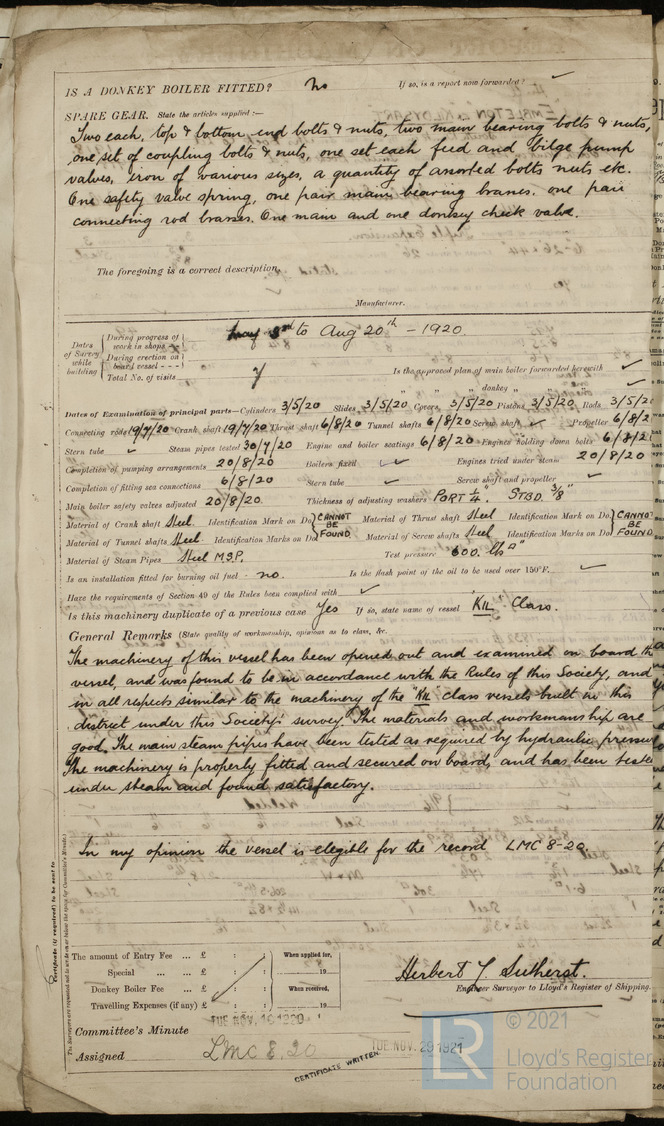 IS A DONKEY BOILER FITTED? No If so, is a report now forwarded? ✓
SPARE GEAR. State the articles supplied :—
Two each, top & bottom end bolts & nuts, two main bearing bolts & nuts,
one set of coupling bolts & nuts, one set each feed and bilge pump
valves, iron of various sizes, a quantity of assorted bolts nuts etc.
One safety valve spring, one pair main bearing brasses. one pair
connecting rod brasses. One main and one donkey check valve.
The foregoing is a correct description,
Manufacturer.
Dates of Survey while building
During progress of work in shops - -
to Aug 20th - 1920.
During erection on board vessel - - -
Total No. of visits 7
Is the approved plan of main boiler forwarded herewith ✓
" " " donkey " " " ✓
Dates of Examination of principal parts—Cylinders 3/5/20 Slides 3/5/20 Covers 3/5/20 Pistons 3/5/20 Rods 3/5/2
Connecting rods 19/7/20 Crank shaft 19/7/20 Thrust shaft 6/8/20 Tunnel shafts 6/8/20 Screw shaft ✓ Propeller 6/8/2
Stern tube ✓ Steam pipes tested 30/7/20 Engine and boiler seatings 6/8/20 Engines holding down bolts 6/8/2
Completion of pumping arrangements 20/8/20 Boilers fixed ✓ Engines tried under steam 20/8/20
Completion of fitting sea connections 6/8/20 Stern tube ✓ Screw shaft and propeller ✓
Main boiler safety valves adjusted 20/8/20. Thickness of adjusting washers PORT 1/2" STBD. 3/8"
Material of Crank shaft Steel Identification Mark on Do. CANNOT BE FOUND Material of Thrust shaft Steel Identification Mark on Do. CANNOT BE FOUND
Material of Tunnel shafts Steel Identification Marks on Do. Material of Screw shafts Steel Identification Marks on Do.
Material of Steam Pipes Steel M.S.P. Test pressure 600. lbs □"
Is an installation fitted for burning oil fuel no. Is the flash point of the oil to be used over 150°F. ✓
Have the requirements of Section 49 of the Rules been complied with ✓
Is this machinery duplicate of a previous case Yes If so, state name of vessel "KIL" Class.
General Remarks (State quality of workmanship, opinions as to class, &c.
The machinery of this vessel has been opened out and examined on board th
vessel, and was found to be in accordance with the Rules of this Society, and
in all respects similar to the machinery of the "KIL" class vessels built in this
district under this Society's survey. The materials and workmanship are
good. The main steam pipes have been tested as required by hydraulic pressur
The machinery is properly fitted and secured on board, and has been teste
under steam and found satisfactory.
In my opinion the vessel is elegible for the record LMC 8-20.
Certificate (if required) to be sent to
The Surveyors are requested not to write on or below the space for Committee's Minute.
The amount of Entry Fee ... £ : : When applied for,
Special ... ... £ : : 19
Donkey Boiler Fee ... £ : : When received,
Travelling Expenses (if any) £ : : 19
Herbert Y. Sutherst.
Engineer Surveyor to Lloyd's Register of Shipping.
Committee's Minute TUE. NOV. 16 1920
TUE. NOV. 29 1921
Assigned LMC 8.20
CERTIFICATE WRITTEN
LR © 2021
Lloyd's Register
Foundation